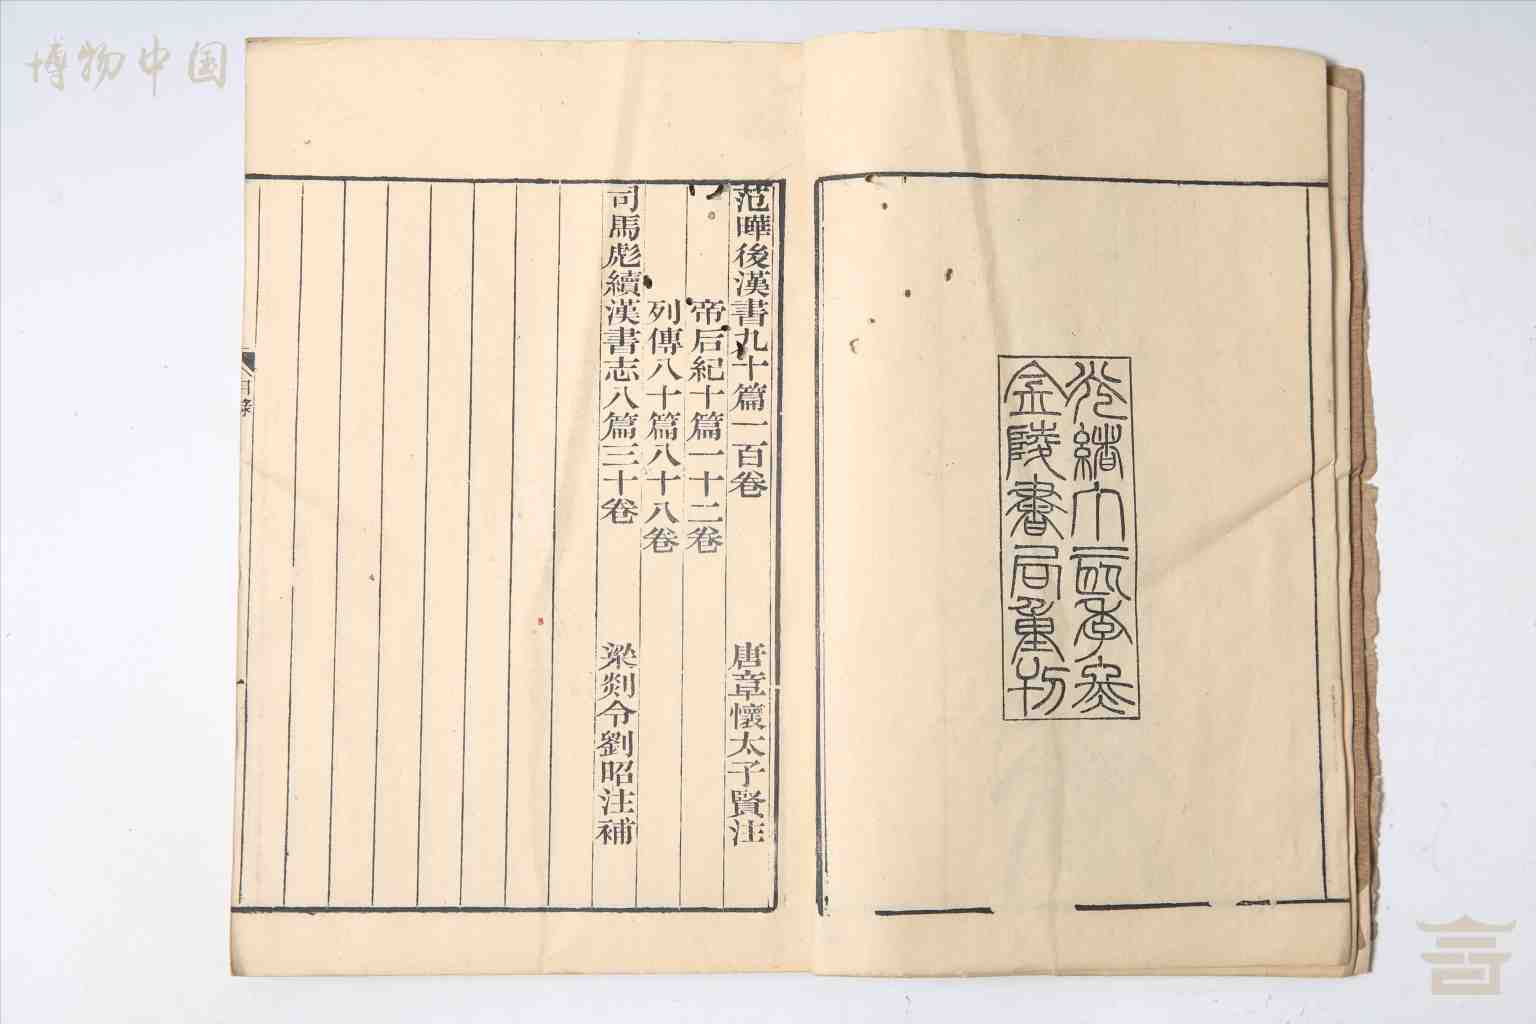 博物中国
光緒丁亥季冬
金陵書局重刊
范曄後漢書九十篇一百卷 唐章懷太子賢注
帝后紀十篇一十二卷
列傳八十篇八十八卷
司馬彪續漢書志八篇三十卷 梁剡令劉昭注補
目錄